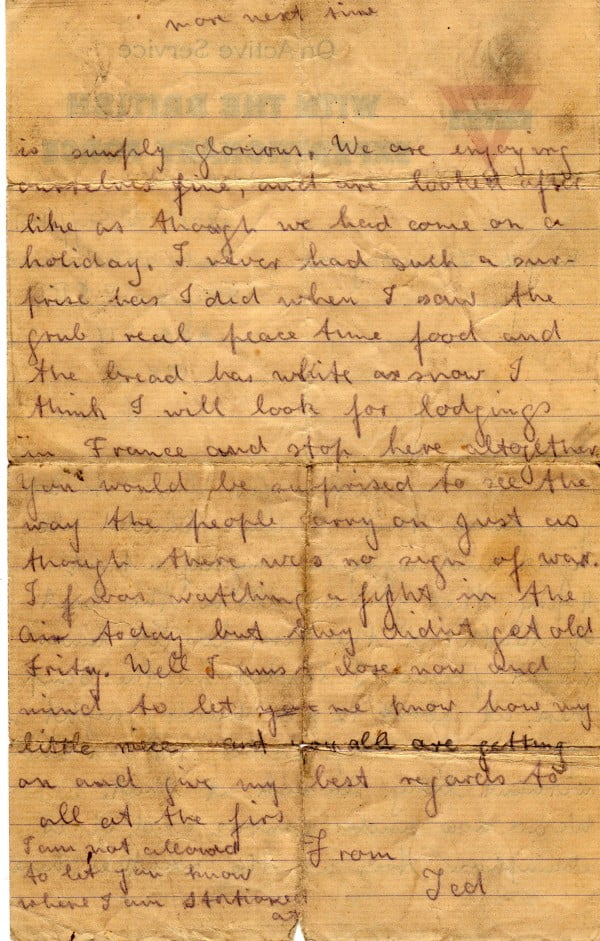 more next time
On Active Service
WITH THE BRITISH
is simply glorious. We are enjoying
ourselves fine, and are looked after
like as though we had come on a
holiday. I never had such a sur-
prise has I did when I saw the
grub real peace time food and
the bread has white as snow I
think I will look for lodgings
in France and stop here altogether
You would be surprised to see the
way the people carry on just as
though there was no sign of war.
I was watching a fight in the
air today but they didnt get old
Fritz. Well I must close now and
mind to let me know how my
little niece and you all are getting
on and give my best regards to
all at the firs
I am not allowed
to let you know
where I am stationed
at
From
Ted